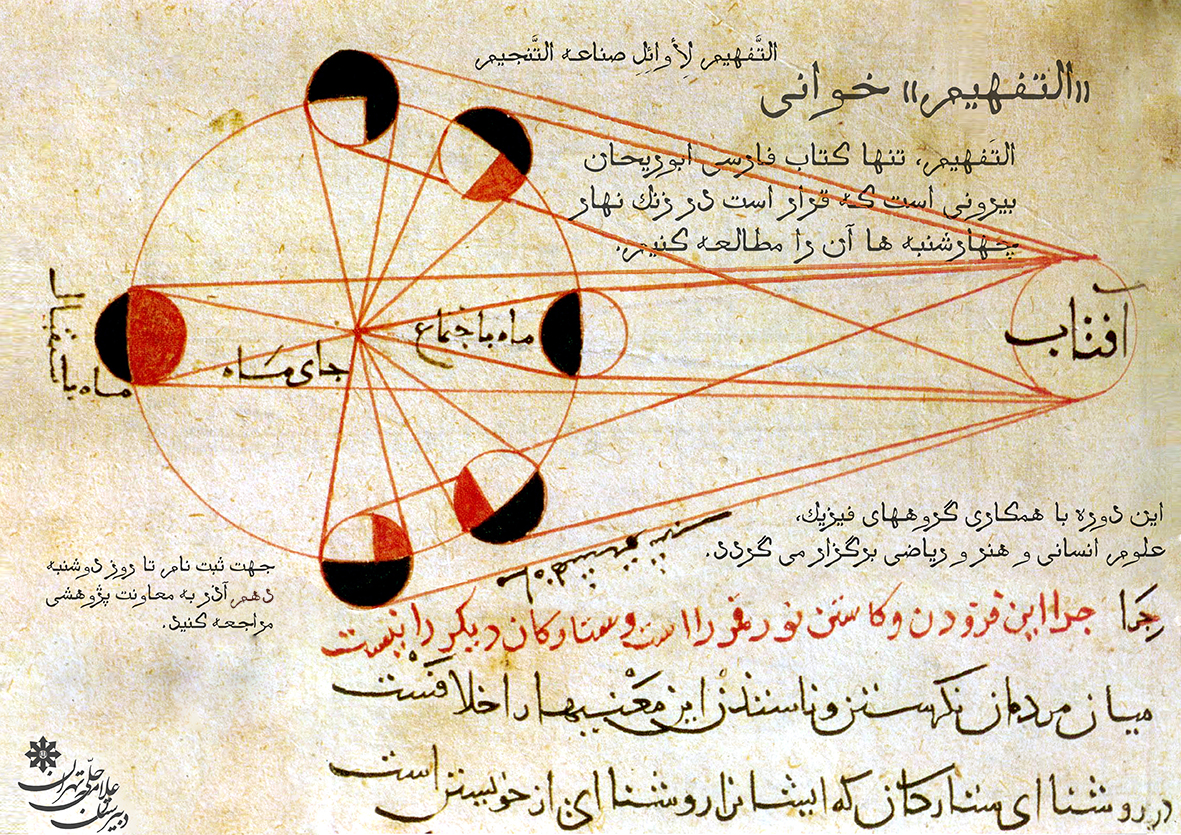 التَّفهیم لِأوائلِ صناعه التَّنجیم
«التفهیم» خوانی
التَفهیم، تنها کتاب فارسی ابوریحان
بیرونی است که قرار است در زنگ نهار
چهارشنبه ها آن را مطالعه کنیم.
آفتاب
ماه باجتماع
جای ماه
ماه باستقبال
این دوره با همکاری گروههای فیزیک،
علوم انسانی و هنر و ریاضی برگزار می گردد.
جهت ثبت نام تا روز دوشنبه
دهم آذر به معاونت پژوهشی
مراجعه کنید.
چرا این فزودن و کاستن نور قمر را است و ستارکان دیکر را نیست
میان مردمان نکرستن و ناسندن این معنیها را خلافست
در روشنای ستارکان که ایشانرا روشنای از خویشتن است
دبیرستان علامه حلّی تهران